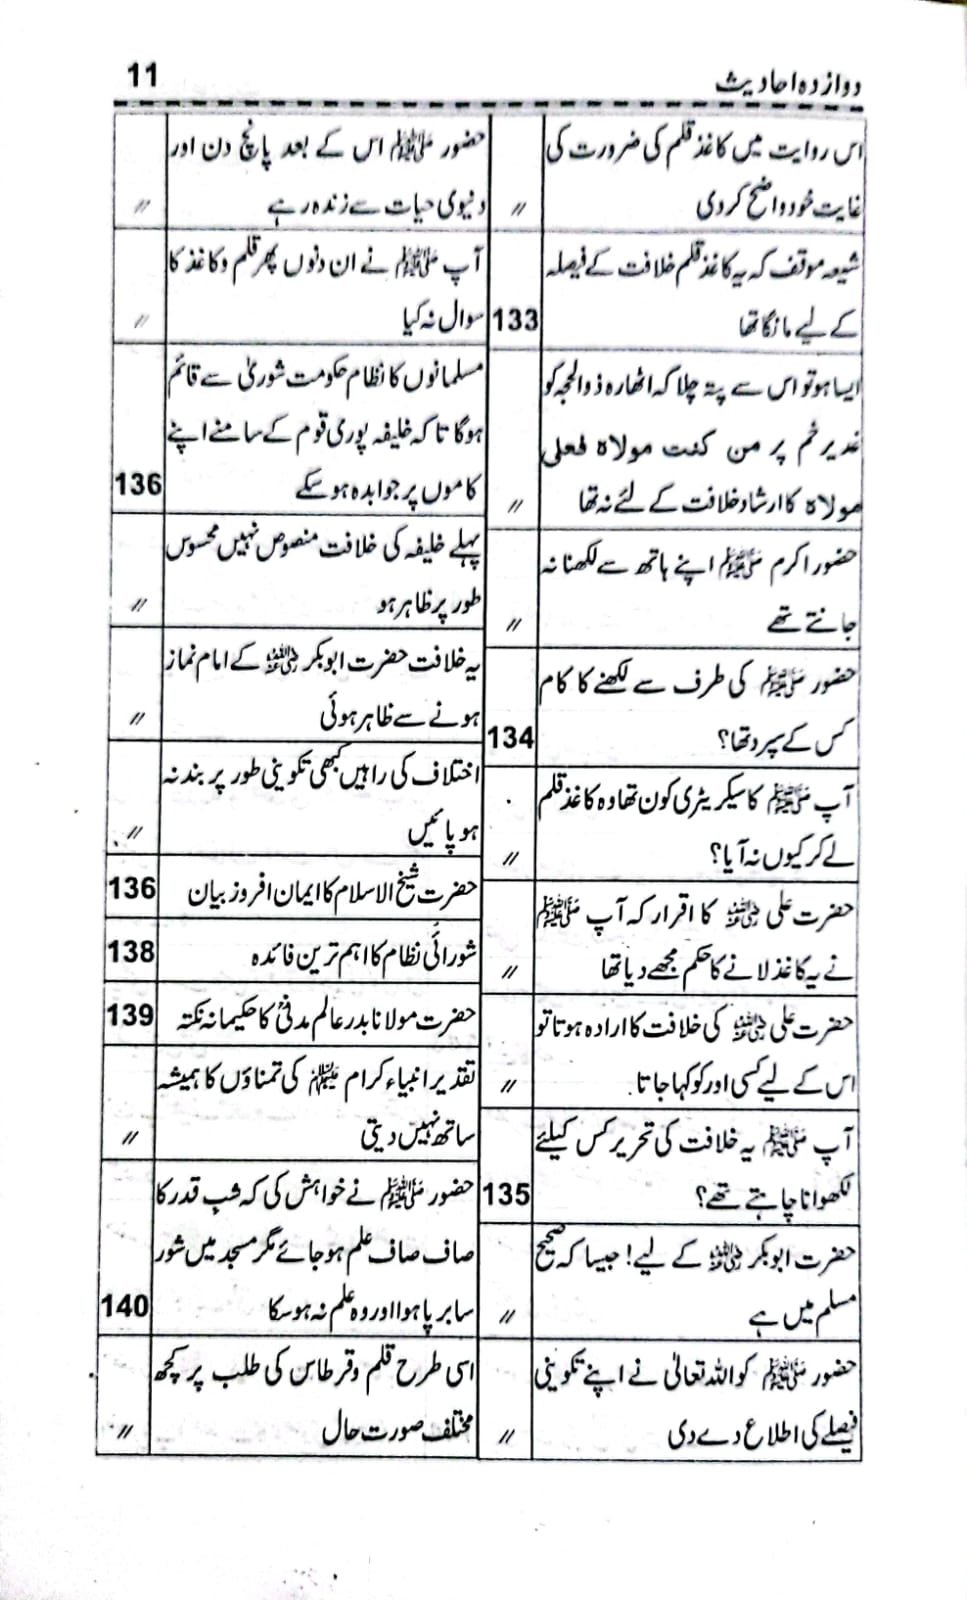 دوازدہ احادیث
11
اس روایت میں کاغذ قلم کی ضرورت کی
غایت خود واضح کردی
〃
شیعہ موقف کہ یہ کاغذ قلم خلافت کے فیصلہ
کے لیے مانگا تھا
133
ایسا ہو تو اس سے پتہ چلا کہ اٹھارہ ذوالحجہ کو
غدیر خم پر من کنت مولاہ فعلی
مولاہ کا ارشاد خلافت کے لئے نہ تھا
〃
حضور اکرم ﷺ اپنے ہاتھ سے لکھنا نہ
جانتے تھے
〃
حضور ﷺ کی طرف سے لکھنے کا کام
کس کے سپرد تھا؟
134
آپ ﷺ کا سیکریٹری کون تھا وہ کاغذ قلم
لے کر کیوں نہ آیا؟
〃
حضرت علی رضی اللہ عنہ کا اقرار کہ آپ ﷺ
نے یہ کاغذ لانے کا حکم مجھے دیا تھا
〃
حضرت علی رضی اللہ عنہ کی خلافت کا ارادہ ہوتا تو
اس کے لیے کسی اور کو کہا جاتا.
〃
آپ ﷺ یہ خلافت کی تحریر کس کیلئے
لکھوانا چاہتے تھے؟
135
حضرت ابوبکر رضی اللہ عنہ کے لیے! جیسا کہ صحیح
مسلم میں ہے
〃
حضور ﷺ کو اللہ تعالیٰ نے اپنے تکوینی
فیصلے کی اطلاع دے دی
〃
حضور ﷺ اس کے بعد پانچ دن اور
دنیوی حیات سے زندہ رہے
〃
آپ ﷺ نے ان دنوں پھر قلم و کاغذ کا
سوال نہ کیا
〃
مسلمانوں کا نظام حکومت شوریٰ سے قائم
ہوگا تاکہ خلیفہ پوری قوم کے سامنے اپنے
کاموں پر جوابدہ ہوسکے
136
پہلے خلیفہ کی خلافت منصوص نہیں محسوس
طور پر ظاہر ہو
〃
یہ خلافت حضرت ابوبکر رضی اللہ عنہ کے امام نماز
ہونے سے ظاہر ہوئی
〃
اختلاف کی راہیں کبھی تکوینی طور پر بند نہ
ہو پائیں
〃
حضرت شیخ الاسلام کا ایمان افروز بیان
136
شورائی نظام کا اہم ترین فائدہ
138
حضرت مولانا بدر عالم مدنیؒ کا حکیمانہ نکتہ
139
تقدیر انبیاء کرام علیہم السلام کی تمناؤں کا ہمیشہ
ساتھ نہیں دیتی
〃
حضور ﷺ نے خواہش کی کہ شب قدر کا
صاف صاف علم ہوجائے مگر مسجد میں شور
سا برپا ہوا اور وہ علم نہ ہوسکا
140
اسی طرح قلم وقرطاس کی طلب پر کچھ
مختلف صورت حال
〃